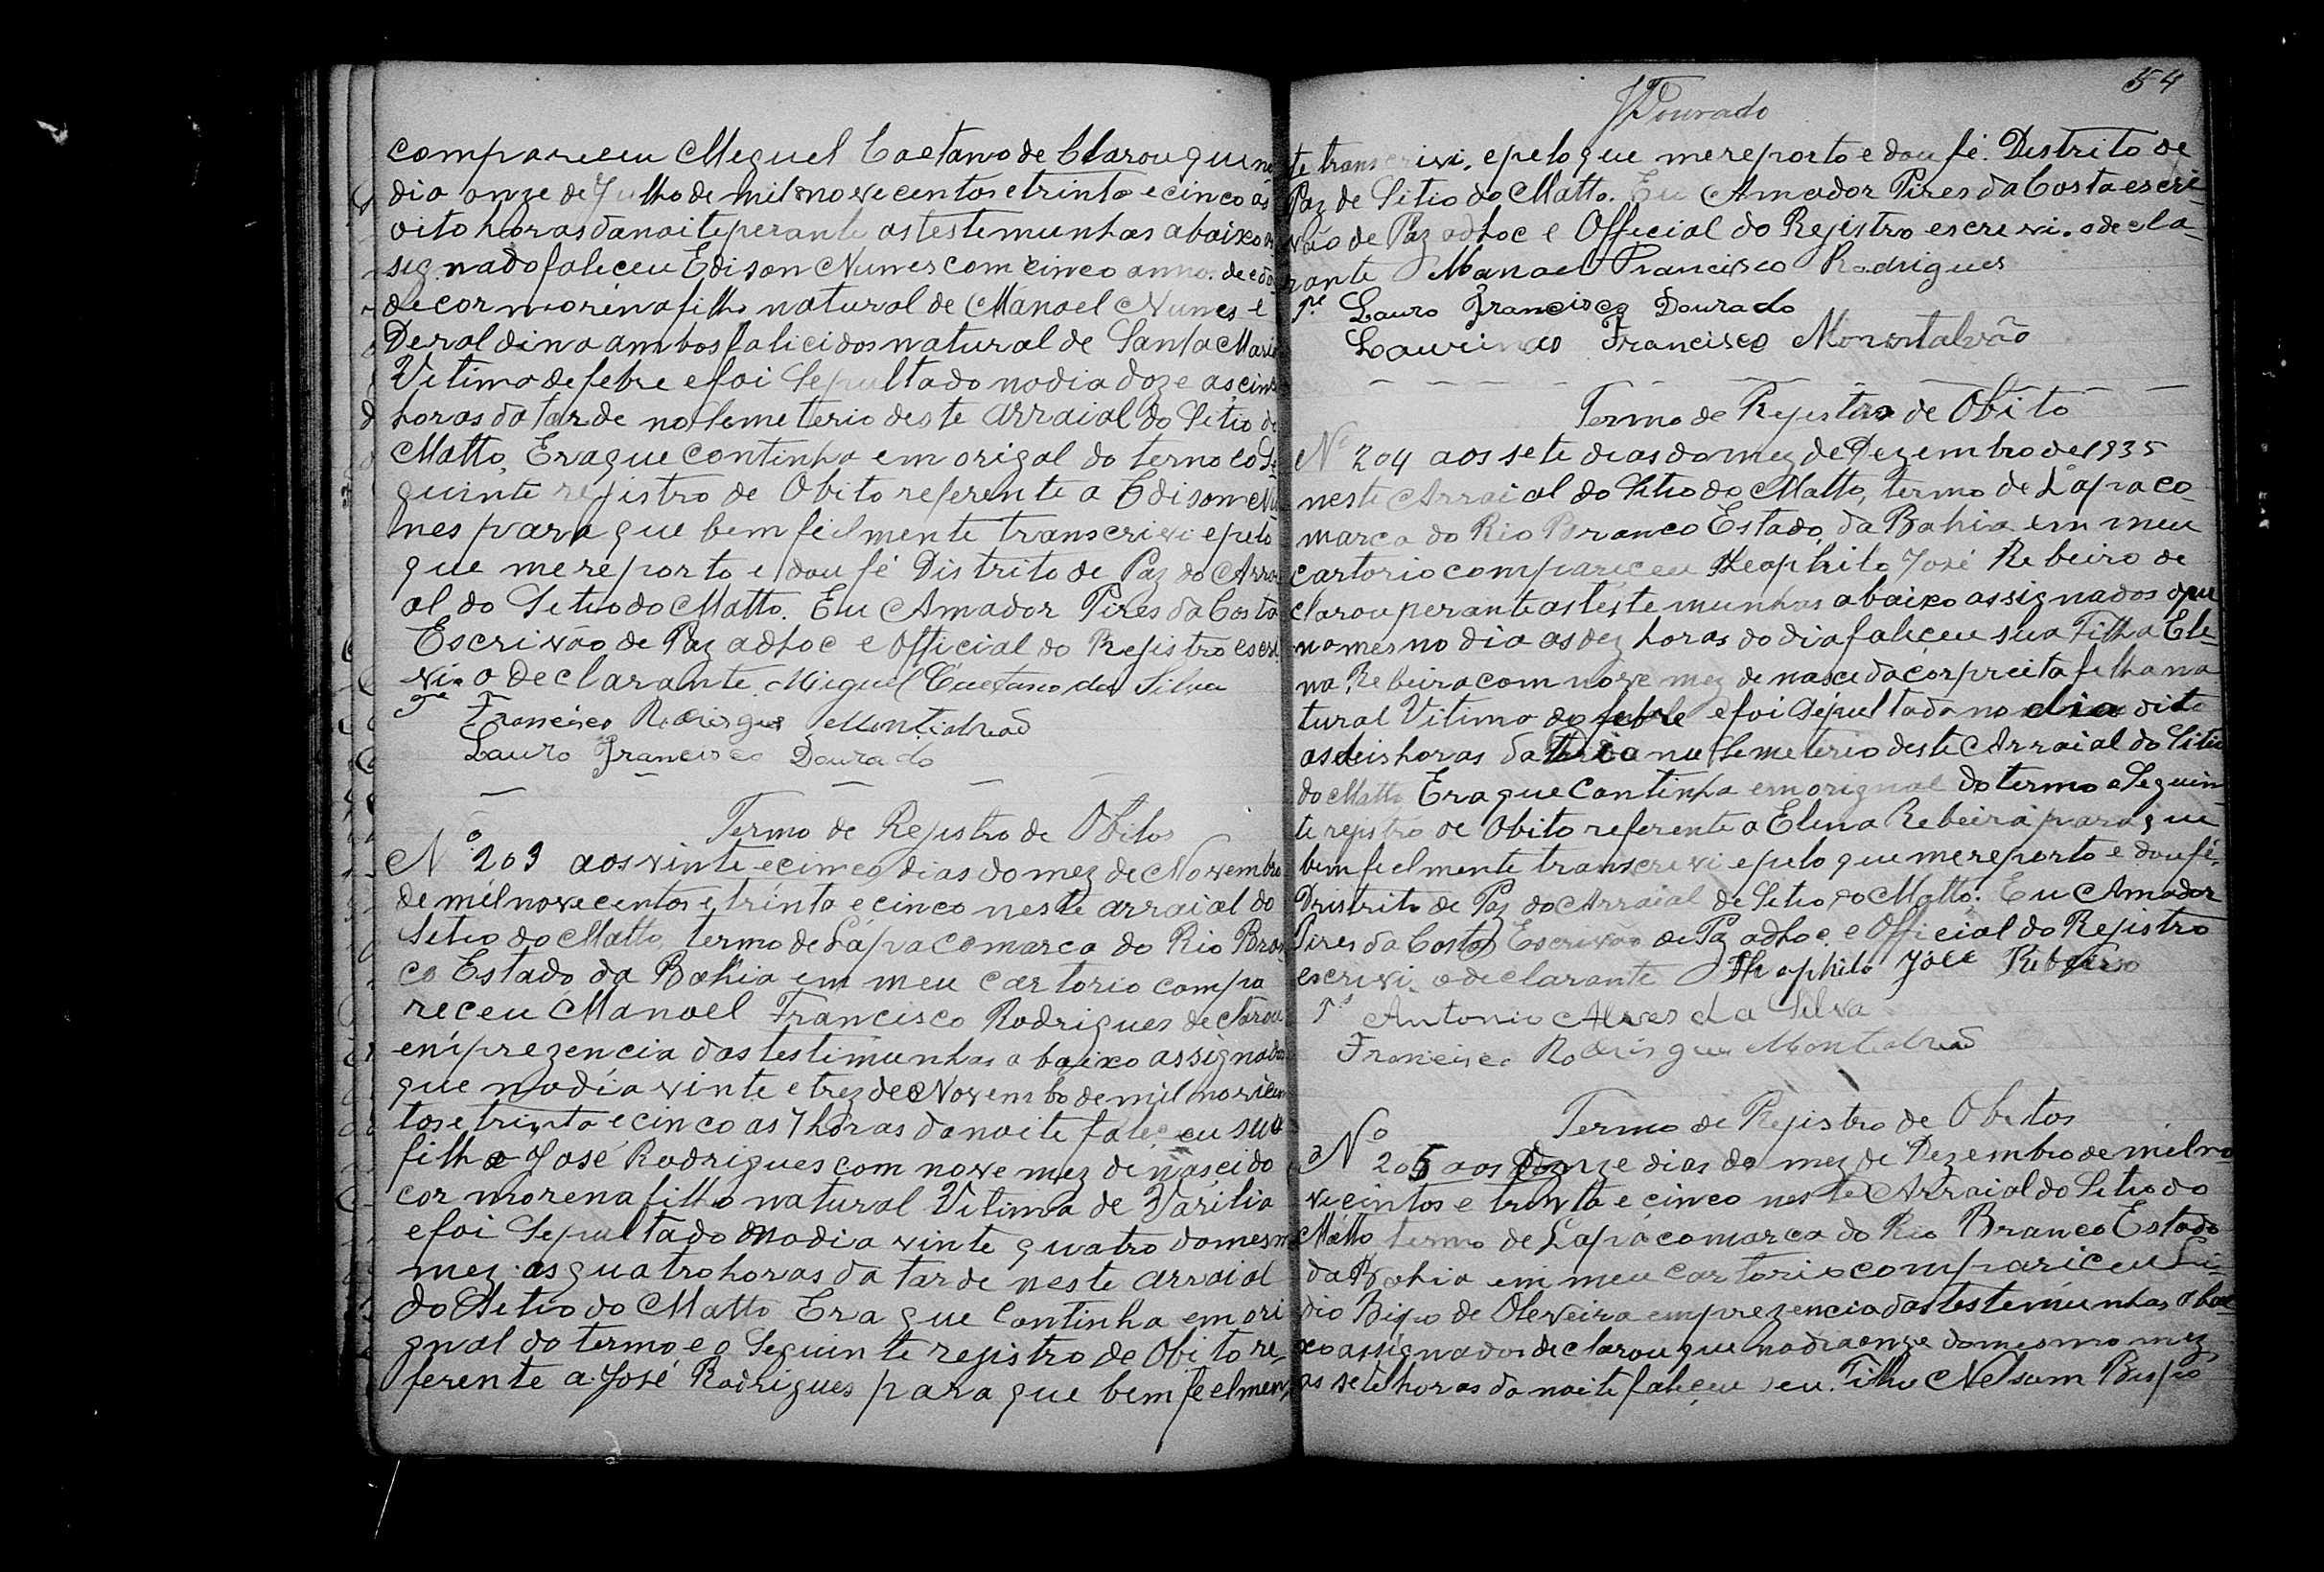 compareceu Meguel Caetano de Clarou que no
dia onze de Julho de mil novecentos e trinta e cinco as
oito horas da noite perante as testemunhas abaixo as
signado faliceu Edison Nunes com cinco anno. de eda
de cor morena filho natural de Manoel Nunes e
Deraldina ambos falicidos natural de Santa Maria
Vitima de febre e foi Sepultado no dia doze as cinco
horas da tarde no Semeterio deste arraial do Setio do
Matto, Era que continha em origal do termo eo Se
guinte rejistro de Obito referente a Edison Nu
nes para que bem fielmente transcrivi e pelo
que me reporto e dou fé Distrito de Paz do Arrai
al do Setio do Matto. Eu Amador Pires da Costa
Escrivão de Paz adhoc e Official do Rejistro escre
vi. o declarante. Miguel Caetano da Silva
Francisco Rodrigues Montealvaõ
Lauro Francisco Dourado
Termo de Rejistro de Obitos
Nº 203 aos vinte e cinco dias do mez de Novembro
de mil novecentos e trinta e cinco neste arraial do
Setio do Matto, termo de Lápa comarca do Rio Bran
co Estado da Bahia em meu cartorio compa
receu Manoel Francisco Rodrigues declarou
em prezencia das testimunhas abaixo assignados
que no dia vinte e trez de Novembo de mil novicen
tos e trinta e cinco as 7 horas da noite faleceu seu
filho José Rodrigues com nove mez de nascido
cor morena filho natural Vitima de Varilia
e foi Sepultado no dia vinte quatro do mesmo
mez. as quatro horas da tarde neste arraial
do Setio do Matto Era que Continha em ori
gnal do termo e o Seguinte rejistro de Obito re,
ferente a José Rodrigues para que bem feelmen
54
JDourado
te transcrivi, e pelo que me reporto e dou fé. Distrito de
Paz de Sitio do Matto. Eu Amador Pires da Costa escri-
vão de Paz adhoc e Official do Rejistro escrevi. o decla-
rante Manoel Francisco Rodrigues
Lauro Francisco Dourado
Laurindo Francisco Monontalvão
Termo de Rejistro de Obito
Nº 204 aos sete dias do mez de Dezembro de 1935
neste Arraial do Sitio do Matto, termo de Lápa co-
marca do Rio Branco Estado, da Bahia em meu
cartorio compareceu Theophilo José Rebeiro de
clarou perante as testemunhas abaixo assignados que
no mesmo dia as dez horas do dia faliceu sua Filha Ele-
na Rebeira com nove mez de nascida cor preita filha na
tural Vitima de febre e foi Sepultada no dia oito
as deis horas da dia nu Semeterio deste Arraial do Sitio
do Matto Era que Continha em orignal do termo e Seguin-
te rejistro de Obito referente a Elena Rebeira para que
bem fielmente transcrevi e pelo que me reporto e dou fé.
Dristrito de Paz do Arraial de Setio do Matto. Eu Amador
Pires da Costa Escrivão de Paz adhoc. e Official do Rejistro
escrivi. o declarante Theophilo José Ribeiro
Antonio Alves da Silva
Francisco Rodrigues Montealvaõ
Termo de Rejistro de Obitos
Nº 205 aos donze dias do mez de Dezembro de mil no
vecintos e trinta e cinco neste Arraial do Setio do
Matto termo de Lapa comarca do Rio Branco Estado
da Bahia em meu cartorio compariceu Li-
dio Bispo de Oleveira em prezencia das testemunhas abai
xo assignados declarou que no dia onze do mesmo mez
as sete horas da noite faliceu seu. Filho Nelsom Bispo